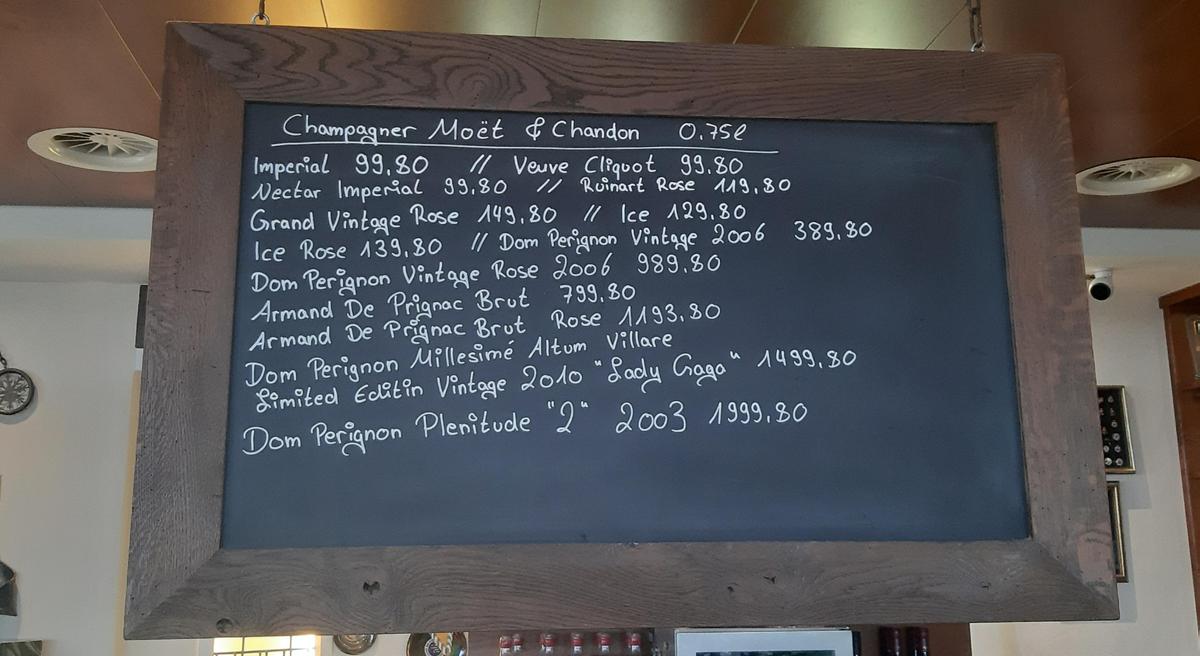 Champagner Moët & Chandon 0.75l
Imperial 99.80 // Veuve Cliquot 99.80
Nectar Imperial 99.80 // Ruinart Rose 119.80
Grand Vintage Rose 149.80 // Ice 129.80
Ice Rose 139.80 // Dom Perignon Vintage 2006 389.80
Dom Perignon Vintage Rose 2006 989.80
Armand De Prignac Brut 799.80
Armand De Prignac Brut Rose 1193.80
Dom Perignon Millesimé Altum Villare
Limited Editin Vintage 2010 "Lady Gaga" 1499.80
Dom Perignon Plenitude "2" 2003 1999.80